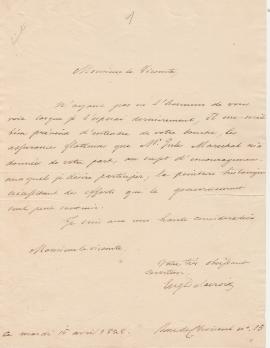 Monsieur le Vicomte,
N'ayant pas eu l'honneur de vous
voir lorsque je l'esperais dernierement, il me
bien précieux d'entendre de votre bouche, les
assurances flatteuses que Mr Jules Mareschal m'a
données de votre part, au sujet d'encouragemens
auxquels je desire participer, la peinture historique
des efforts que le gouvernement
seul peut
Je suis avec une haute consideration
Monsieur le vicomte
Votre très obéissant
serviteur
Eug. Delacroix
ce mardi 15 avril 1828.
Rue de Choiseul no. 15